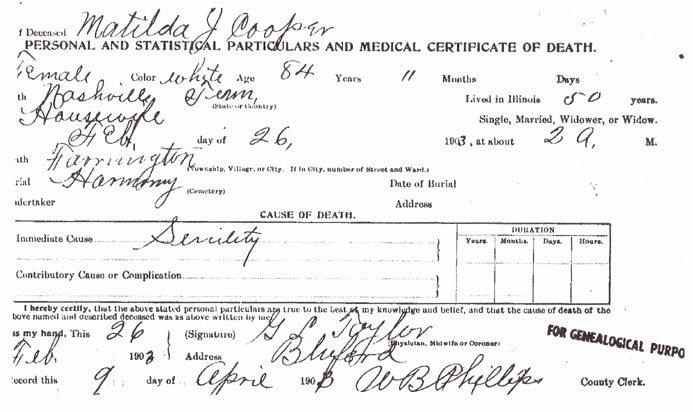 f Deceased Matilda J Cooper
PERSONAL AND STATISTICAL PARTICULARS AND MEDICAL CERTIFICATE OF DEATH.
Female Color white Age 84 Years 11 Months Days
th Nashville Tenn, (State or Country) Lived in Illinois 50 years.
Housewife Single, Married, Widower, or Widow.
Feb, day of 26, 1903, at about 2 A, M.
ath Farrington (Township, Village, or City. If in City, number of Street and Ward.)
rial Harmony (Cemetery) Date of Burial
dertaker Address
CAUSE OF DEATH.
DURATION
Immediate Cause Senility Years. Months. Days. Hours.
Contributory Cause or Complication
I hereby certify, that the above stated personal particulars are true to the best of my knowledge and belief, and that the cause of death of the
bove named and described deceased was as above written by me
ss my hand, This 26 (Signature) G L Taylor
(Physician, Midwife or Coroner)
Feb 1903 Address Bluford
FOR GENEALOGICAL PURPO
ecord this 9 day of April 1903 W B Phillips County Clerk.